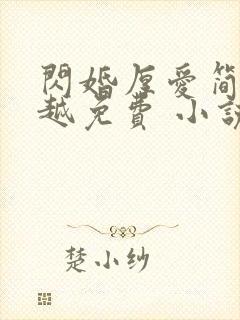 閃婚厚愛簡
越免費 小說
楚小纱